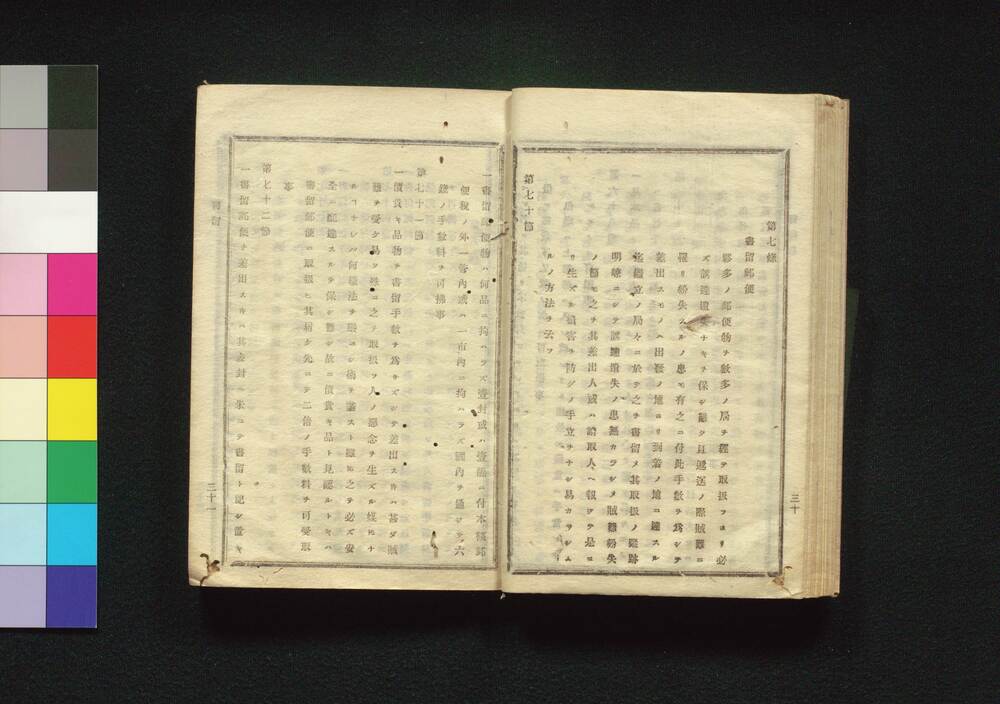 第七條
書留郵便
夥多ノ郵便物ヲ數多ノ局ヲ經テ取扱フヨリ必
ズ誤達遺失ナキヲ保シ難ク且遞送ノ際賊難ニ
罹リ紛失スルノ患モ有之ニ付此手數ヲ爲シテ
差出スモノハ出發ノ地ヨリ到着ノ地ニ達スル
迄繼立ノ局々ニ於テ之ヲ書留メ其取扱ノ蹤跡
明瞭ニシテ誤達遺失ノ患無カラシメ賊難紛失
ノ節モ之ヲ其差出人或ハ請取人ヘ報シテ是ヨ
リ生ズル損害ヲ防グノ手立ヲナシ易カラシム
ルノ方法ヲ云フ
第七十節
三十
一書留郵便物ハ何品ニ拘ハラズ壹封或ハ壹箇ニ付本稅郵
便稅ノ外一書內或ハ一市內ニ拘ハラズ國內ヲ通ジテ六
錢ノ手數料ヲ可拂事
第七十一節
一價貴キ品物ヲ書留手數ヲ爲サズシテ差出スハ甚ダ賊
難ヲ受ケ易ク殊ニ之ヲ取扱フ人ノ懸念ヲ生ズル媒ヒナ
ルコナレバ何樣法ヲ嚴ニシ術ヲ盡スト雖モ之ヲ必ズ安
全ニ配達スルヲ保シ難シ故ニ價貴キ品ト見認ルトキハ
書留郵便ニ取扱ヒ其屆ケ先ニテ二倍ノ手數料ヲ可受取
事
第七十二節
一書留郵便ヲ差出スハ其表封ヘ朱ニテ書留ト記シ置キ
三十一